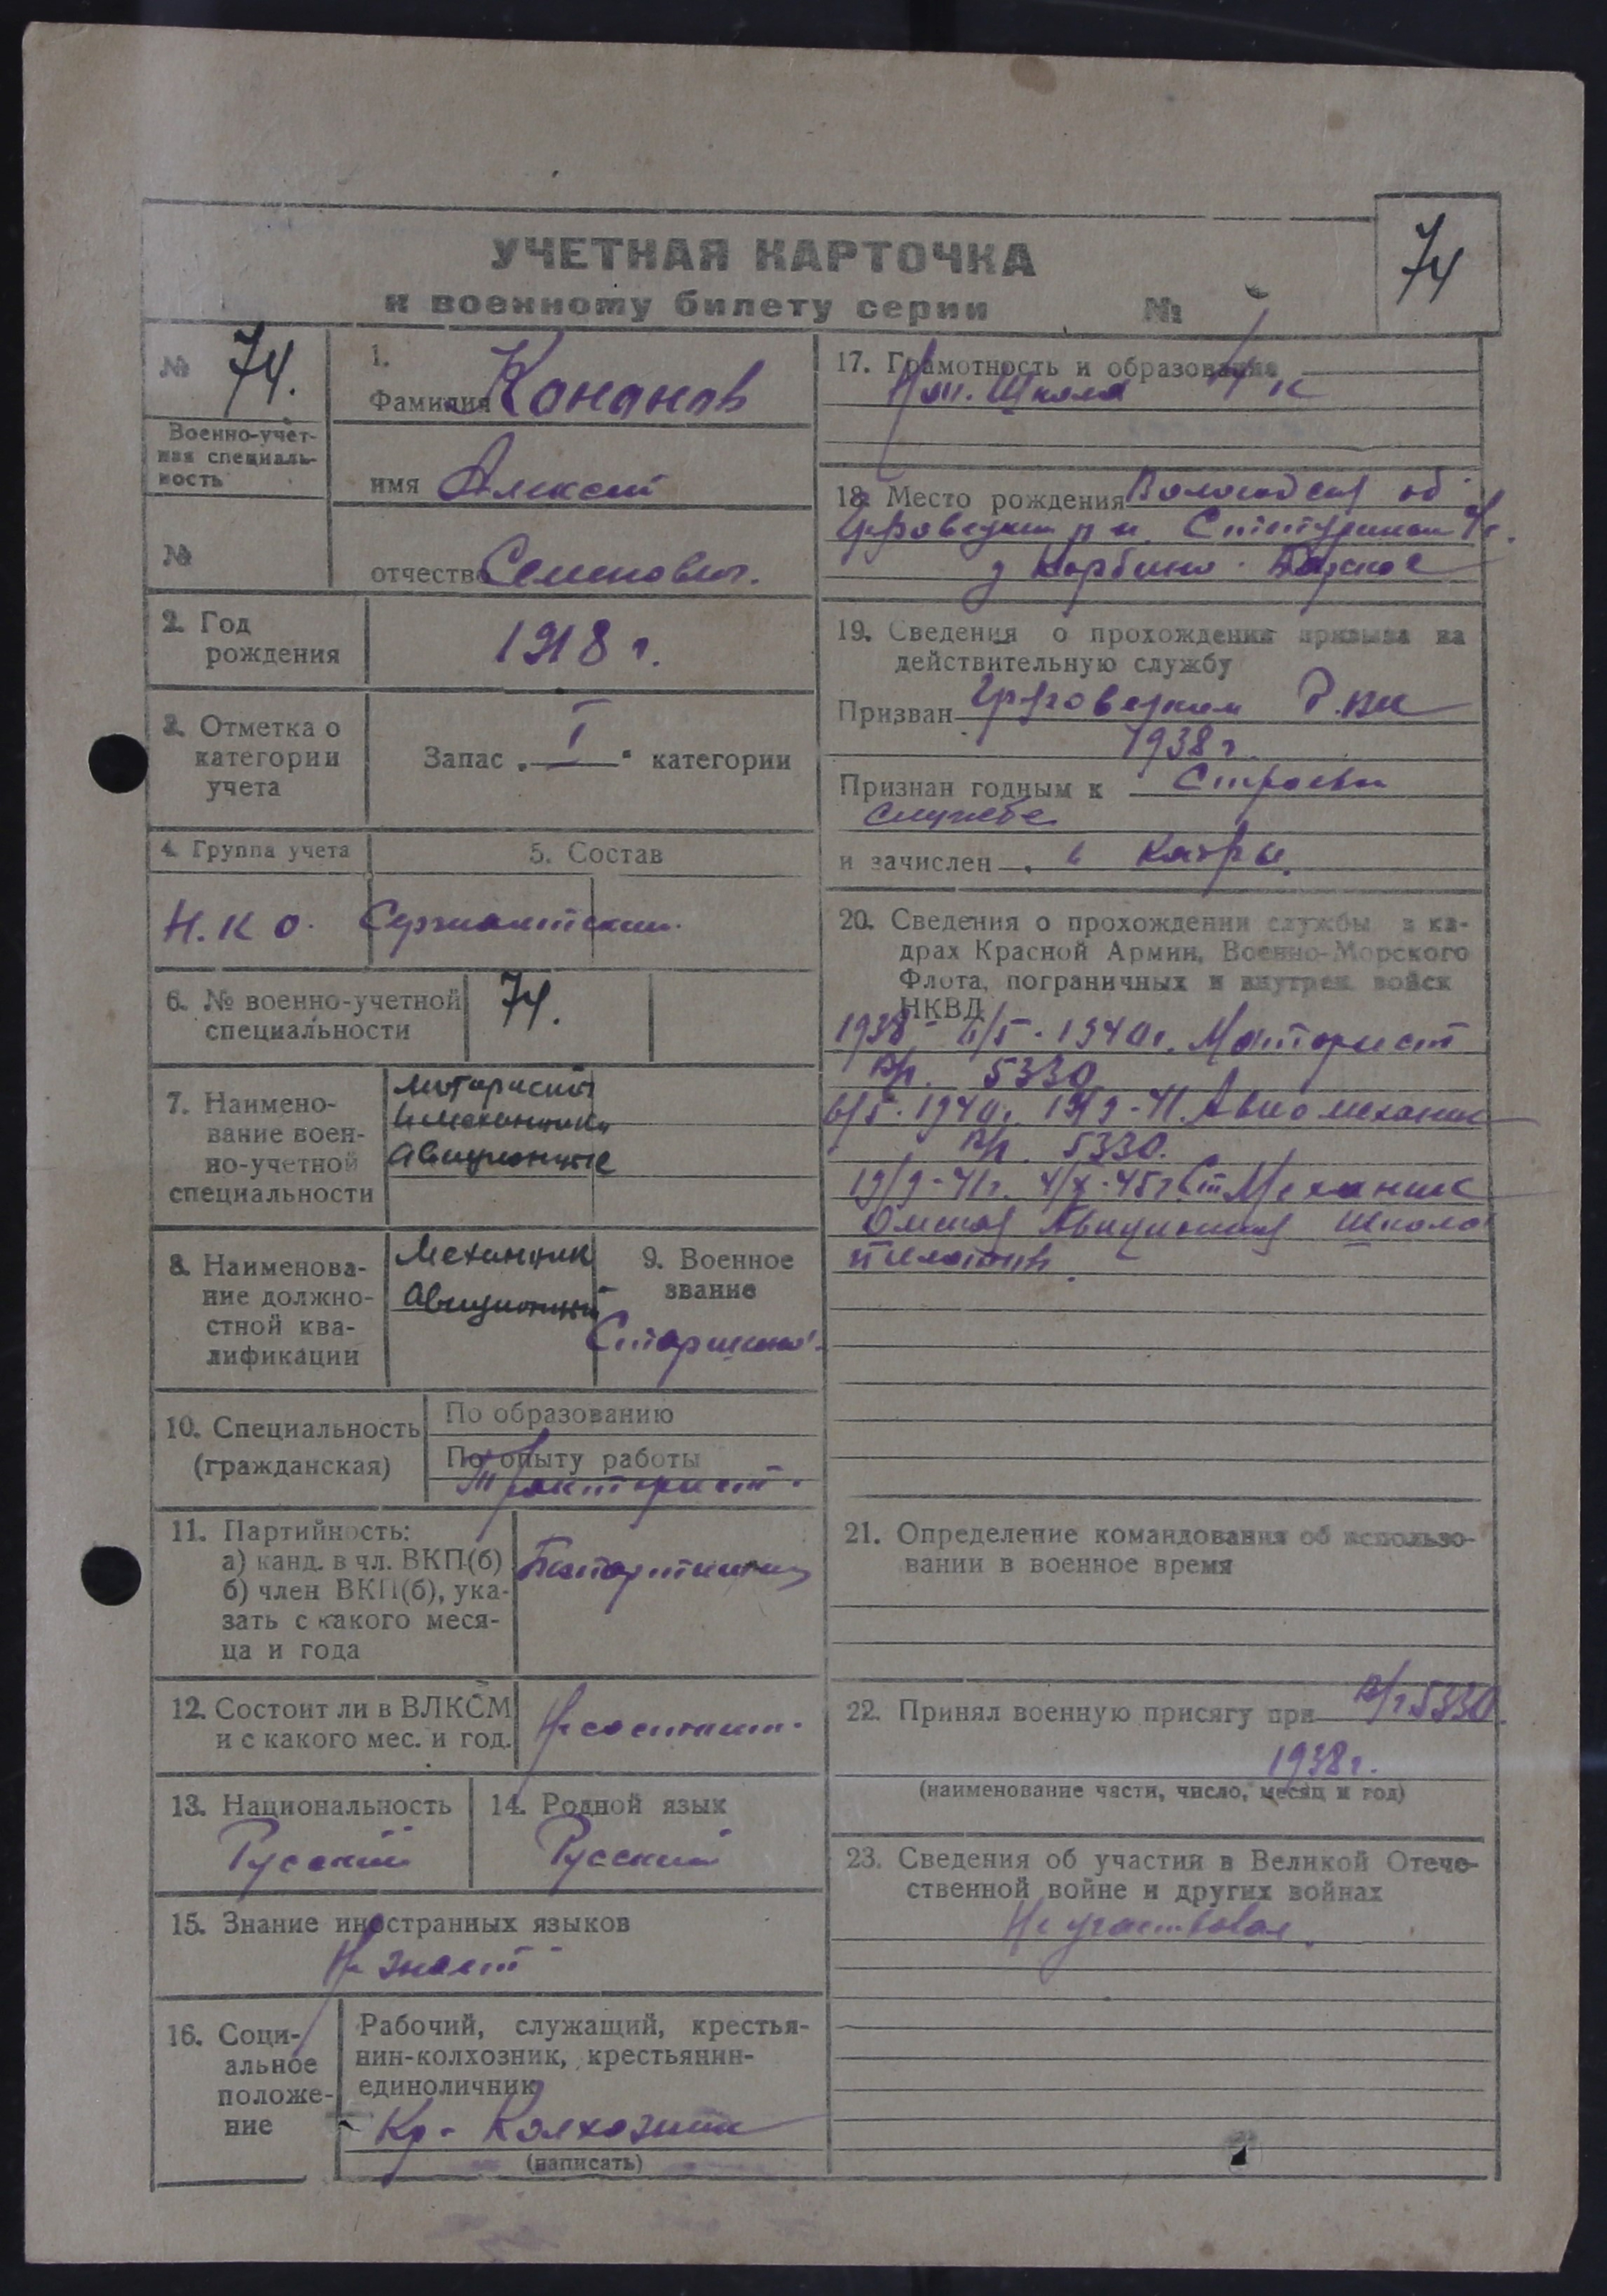 74
УЧЕТНАЯ КАРТОЧКА
к военному билету серии №
№ 74.
Военно-учет-
ная специаль-
ность
№
1.
Фамилия Кананов
имя Алексей
отчество Семенович.
2. Год
рождения
1918 г.
3. Отметка о
категории
учета
Запас „ I " категории
4. Группа учета
5. Состав
Н.К О. Сержантский.
6. № военно-учетной
специальности
74.
7. Наимено-
вание воен-
но-учетной
специальности
Мотористы
и механики
авиционные
8. Наименова-
ние должно-
стной ква-
лификации
Механик
авиционный
9. Военное
звание
Старшина
10. Специальность
(гражданская)
По образованию
По опыту работы
Тракторист.
11. Партийность:
а) канд. в чл. ВКП(б)
б) член ВКП(б), ука-
зать с какого меся-
ца и года
Беспартийный
12. Состоит ли в ВЛКСМ
и с какого мес. и год.
Не состоит.
13. Национальность
Русский
14. Родной язык
Русский
15. Знание иностранных языков
Не знает
16. Соци-
альное
положе-
ние
Рабочий, служащий, крестья-
нин-колхозник, крестьянин-
единоличник
Кр- Колхозник
(написать)
17. Грамотность и образования
Нач. Школа 4 к
18. Место рождения Вологодская об
р н.
д
19. Сведения о прохождении призыва на
действительную службу
Призван Р.ВК
1938 г.
Признан годным к Строевой
службе
и зачислен в Кадры.
20. Сведения о прохождении службы в ка-
драх Красной Армии, Военно-Морского
Флота, пограничных и внутрен. войск
НКВД
1938 - 6/5 - 1940г. Моторист
в/ч. 5330
6/5 - 1940г. 19/9 - 41. Авиомеханик
в/ч. 5330.
19/9 - 41г. 4/X - 45г. Ст Механик
Омская Авиционная Школа
пилотов.
21. Определение командования об использо-
вании в военное время
22. Принял военную присягу при в/ч 5330.
1938 г.
(наименование части, число, месяц и год)
23. Сведения об участии в Великой Отече-
ственной войне и других войнах
Не участвовал.